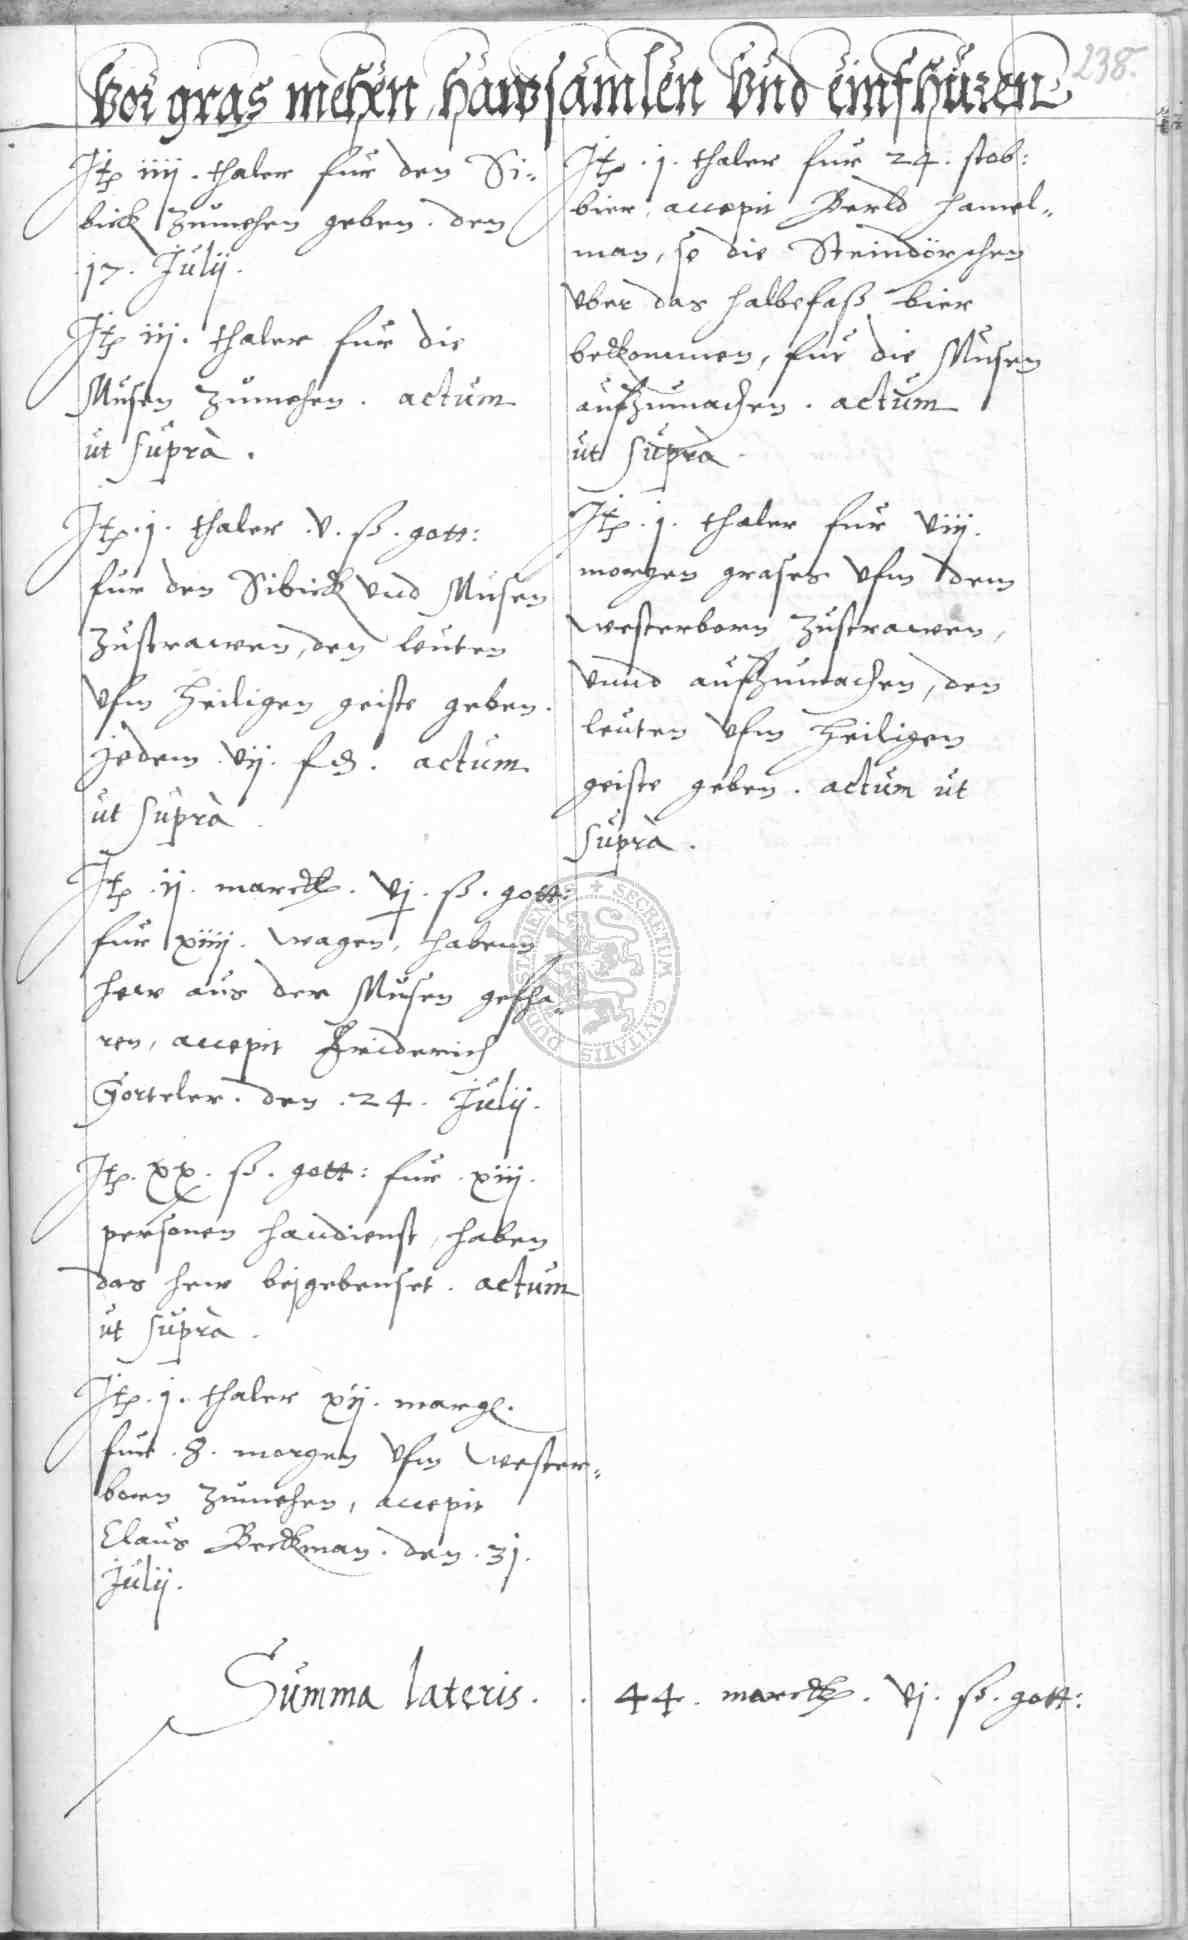 238.
Vor gras mehen, hawsamlen Vnd einfhuren
Itp iiij. thaler fur den Si-
bick zumehen geben. den
17. Julij.
Itp iij. thaler fur die
Musen zumehen. actum
ut suprà.
Itp. j. thaler .v. ß. gott:
fur den Sibick vnd Musen
zustrawen, den leuten
vfm heiligen geiste geben.
jedem vij. actum
ut suprà.
Itp. ij. marck. vj. ß. gott:
fur xiiij. wagen, habenn
hew aus der Musen gefha-
ren, accepit Friderich
Gorteler. den .24. Julij.
Itp. xx. ß. gott: fur .xiij.
personen handienst, haben
das hew actum
ut suprà.
Itp. j. thaler xij. margl.
fur .8. morgen vfm Wester-
born zumehen, accepit
Claus Beckman. den .31.
Julij.
Itp. j. thaler fur 24. stob:
bier, accepit Berld Hamel-
man, so die Steindörschen
vber das halbefaß bier
beckommen, fur die Musen
aufzumachen. actum
ut suprà.
Itp. j. thaler fur viij.
morgen grases vfm dem
Westerborn zustrawen,
vnnd aufzumachen, den
leuten vfm heiligen
geiste geben. actum ut
suprà.
Summa lateris. . 44. marck. vj. ß. gott:
SECRETUM CIVITATIS DUDERSTADIENSIS